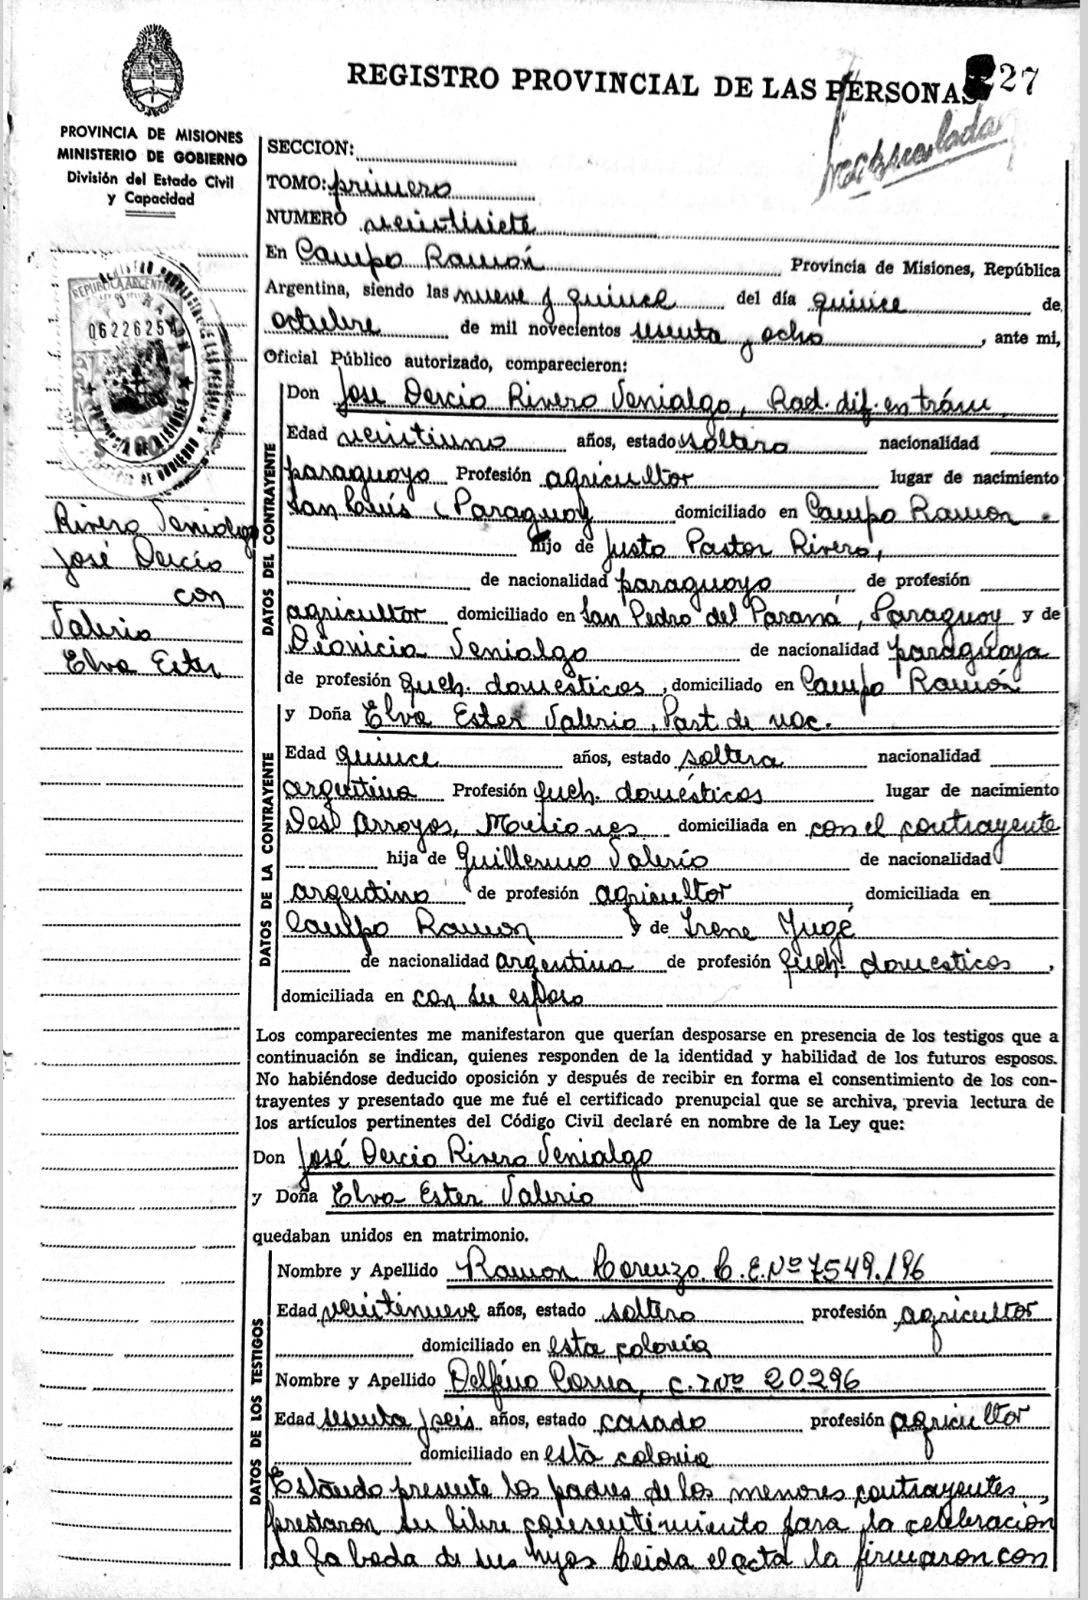 REGISTRO PROVINCIAL DE LAS PERSONAS 27
PROVINCIA DE MISIONES
MINISTERIO DE GOBIERNO
División del Estado Civil
y Capacidad
REPUBLICA ARGENTINA
06226251
Rivero Venialgo
José Dercio
con
Valerio
Elva Ester
SECCION:
TOMO: primero
NUMERO veintisiete
En Campo Ramón Provincia de Misiones, República
Argentina, siendo las nueve y quince del día quince de
octubre de mil novecientos sesenta y ocho, ante mi,
Oficial Público autorizado, comparecieron:
DATOS DEL CONTRAYENTE
Don Jose Dercio Rivero Venialgo, Rad. dif. en trám
Edad veintiuno años, estado soltero nacionalidad
paraguayo Profesión agricultor lugar de nacimiento
San Luis (Paraguay domiciliado en Campo Ramon
hijo de Justo Pastor Rivero,
de nacionalidad paraguayo de profesión
agricultor domiciliado en San Pedro del Paraná, Paraguay y de
Dionicia Venialgo de nacionalidad paraguaya
de profesión queh. domesticos, domiciliado en Campo Ramón
DATOS DE LA CONTRAYENTE
y Doña Elva Ester Valerio, Part. de nac.
Edad quince años, estado soltera nacionalidad
argentina Profesión queh. domésticos lugar de nacimiento
Dos Arroyos, Misiones domiciliada en con el contrayente
hija de Guillermo Valerio de nacionalidad
argentino de profesión agricultor domiciliada en
Campo Ramon y de Irene Yugé
de nacionalidad argentina de profesión queh. domesticos,
domiciliada en con su esposo
Los comparecientes me manifestaron que querían desposarse en presencia de los testigos que a
continuación se indican, quienes responden de la identidad y habilidad de los futuros esposos.
No habiéndose deducido oposición y después de recibir en forma el consentimiento de los con-
trayentes y presentado que me fué el certificado prenupcial que se archiva, previa lectura de
los artículos pertinentes del Código Civil declaré en nombre de la Ley que:
Don José Dercio Rivero Venialgo
y Doña Elva Ester Valerio
quedaban unidos en matrimonio.
DATOS DE LOS TESTIGOS
Nombre y Apellido Ramon Lorenzo C.E. Nº 7549.196
Edad veintinueve años, estado soltero profesión agricultor
domiciliado en esta colonia
Nombre y Apellido Delfino Correa, C. I Nº 20.296
Edad sesenta y seis años, estado casado profesión agricultor
domiciliado en esta colonia
Estando presente los padres de los menores contrayentes,
prestaron su libre consentimiento para la celebración
de la boda de sus hijos Leida el acta la firmaron con